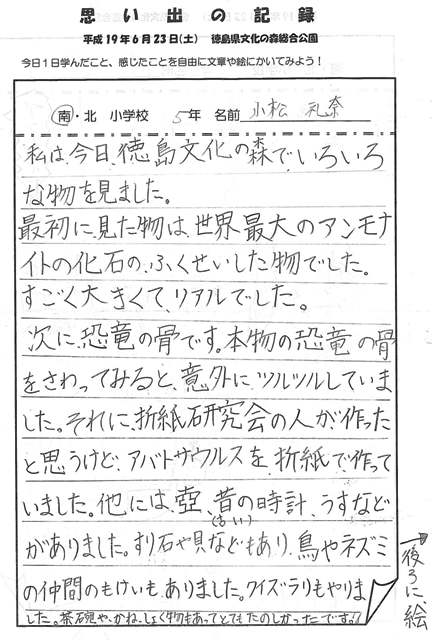 思い出の記録
平成19年6月23日(土) 徳島県文化の森総合公園
今日1日学んだこと、感じたことを自由に文章や絵にかいてみよう!
南・北 小学校 5年 名前 小松 礼奈
私は、今日、徳島文化の森で、いろいろ
な物を見ました。
最初に、見た物は、世界最大のアンモナ
イトの化石の、ふくせいした物でした。
すごく大きくて、リアルでした。
次に、恐竜の骨です。本物の恐竜の骨
をさわってみると、意外に、ツルツルしていま
した。それに、折紙研究会の人が作った
と思うけど、アバトサウルスを、折紙で作って
いました。他には、壺、昔の時計、うすなど
がありました。すり石や貝(るい)などもあり、鳥やネズミ
の仲間のもけいも、ありました。クイズラリもやりま
した。茶碗や、かね、しょく物もあってとてもたのしかったです。
→後ろに、絵